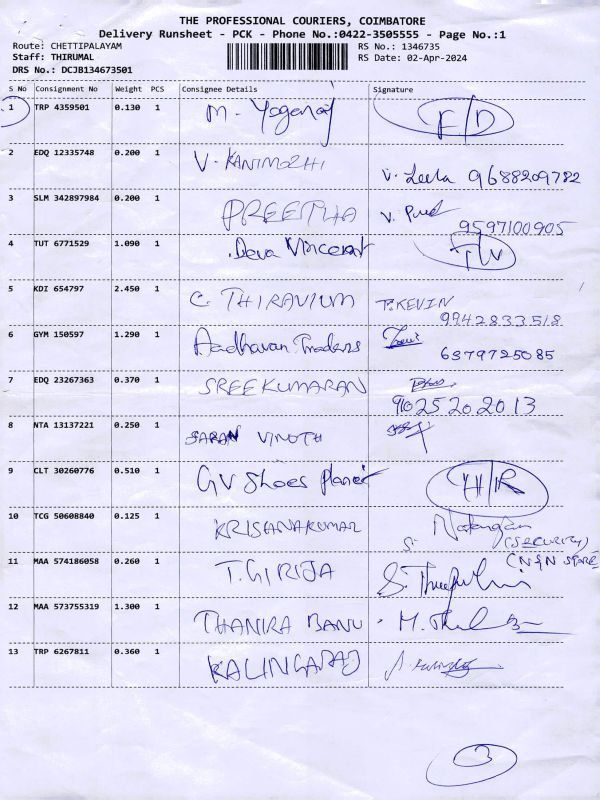 THE PROFESSIONAL COURIERS, COIMBATORE
Delivery Runsheet - PCK - Phone No.:0422-3505555 - Page No.:1
Route: CHETTIPALAYAM RS No.: 1346735
Staff: THIRUMAL RS Date: 02-Apr-2024
DRS No.: DCJB134673501
S No Consignment No Weight PCS Consignee Details Signature
1 TRP 4359501 0.130 1 M. Yoganaj F/D
2 EDQ 12335748 0.200 1 V. KANIMOZHI V. Leela 9688209782
3 SLM 342897984 0.200 1 PREETHA V. 9597100905
4 TUT 6771529 1.090 1 Deva Vincent
5 KDI 654797 2.450 1 C. THIRAVIUM P. KEVIN
9942833518
6 GYM 150597 1.290 1 Aadhavan Traders
6379725085
7 EDQ 23267363 0.370 1 SREEKUMARAN
9025202013
8 NTA 13137221 0.250 1 SARAN VINOTH
9 CLT 30260776 0.510 1 GV Shoes Planet H/R
10 TCG 50608840 0.125 1 KRISANAKUMAR S. Natangan
(SECURITY)
11 MAA 574186058 0.260 1 T. GIRIJA S.
12 MAA 573755319 1.300 1 THANIRA BANU M.
13 TRP 6267811 0.360 1 KALINGARAJ
3